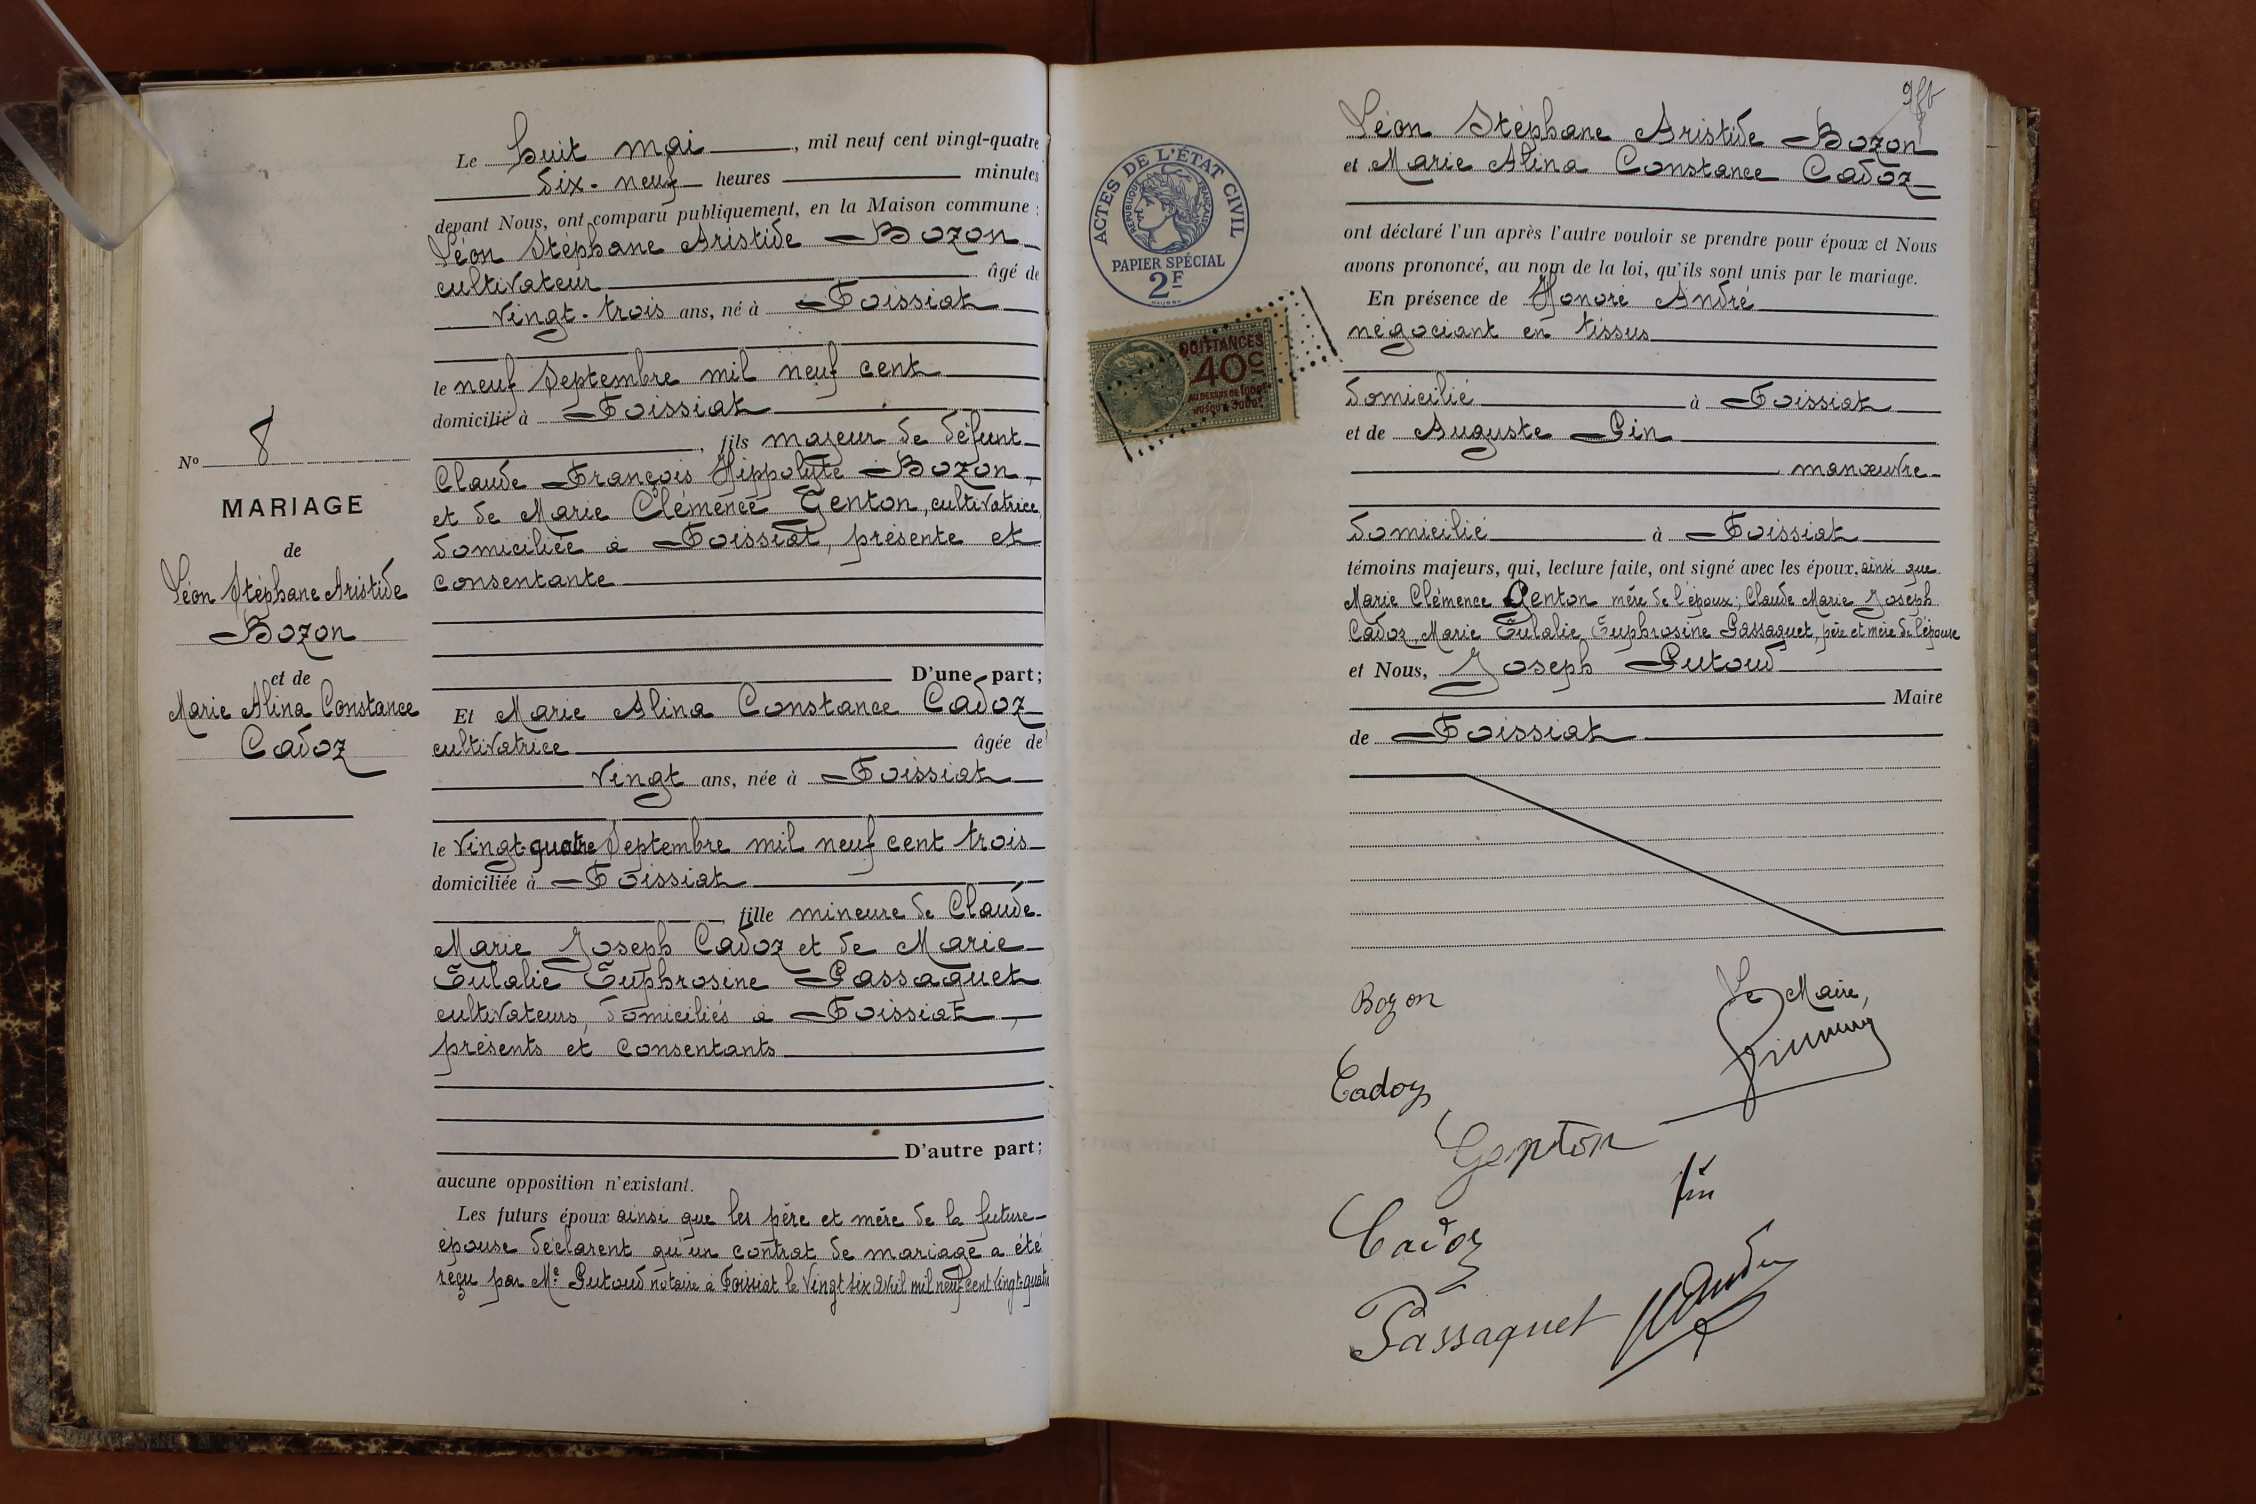 Nº 8
MARIAGE
de
Léon Stéphane Aristide
Bozon
et de
Marie Alina Constance
Cadoz
Le huit mai, mil neuf cent vingt-quatre
dix-neuf heures minutes
devant Nous, ont comparu publiquement, en la Maison commune :
Léon Stéphane Aristide Bozon
cultivateur âgé de
vingt-trois ans, né à Foissiat
le neuf Septembre mil neuf cent
domicilié à Foissiat
, fils majeur de défunt
Claude François Hippolyte Bozon,
et de Marie Clémence Genton, cultivatrice,
domiciliée à Foissiat, présente et
consentante
D'une part;
Et Marie Alina Constance Cadoz
cultivatrice âgée de
vingt ans, née à Foissiat
le vingt-quatre Septembre mil neuf cent trois
domiciliée à Foissiat
, fille mineure de Claude
Marie Joseph Cadoz et de Marie
Eulalie Euphrosine Passaquet
cultivateurs, domiciliés à Foissiat,
présents et consentants
D'autre part;
aucune opposition n'existant.
Les futurs époux ainsi que les père et mère de la future
épouse déclarent qu'un contrat de mariage a été
reçu par Me Putoud notaire à Foissiat le vingt six avril mil neuf cent vingt-quatre
ACTES DE L'ÉTAT CIVIL
RÉPUBLIQUE FRANÇAISE
PAPIER SPÉCIAL
2F
QUITTANCES
40c
AU DESSUS DE 1000F
JUSQU'A 3000F
Léon Stéphane Aristide Bozon
et Marie Alina Constance Cadoz
ont déclaré l'un après l'autre vouloir se prendre pour époux et Nous
avons prononcé, au nom de la loi, qu'ils sont unis par le mariage.
En présence de Honoré André
négociant en tissus
domicilié à Foissiat
et de Auguste Pin
, manœuvre
domicilié à Foissiat
témoins majeurs, qui, lecture faite, ont signé avec les époux, ainsi que
Marie Clémence Genton mère de l'époux; Claude Marie Joseph
Cadoz, Marie Eulalie Euphrosine Passaquet, père et mère de l'épouse
et Nous, Joseph Putoud
Maire
de Foissiat
Bozon
Le Maire,
Cadoz
Genton
Pin
Cadoz
Passaquet